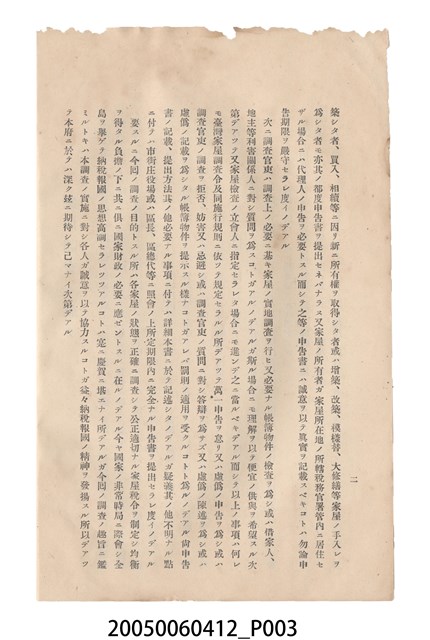 築シタ者、買入、相續等ニ因リ新ニ所有權ヲ取得シタ者或ハ增築、改築、模樣替、大修繕等家屋ノ手入レヲ
爲シタ者モ亦其ノ都度申告書ヲ提出セネバナラヌ又家屋ノ所有者ガ家屋所在地ノ所轄稅務官署管內ニ居住セ
ザル場合ニハ代理人ノ申告ヲ必要トスル而シテ之等ノ申告書ニハ誠意ヲ以テ眞實ヲ記載スベキコトハ勿論申
告期限ヲ嚴守セラレ度イノデアル
次ニ調查官吏ハ調查上ノ必要ニ基キ家屋ノ實地調查ヲ行ヒ又必要ナル帳簿物件ノ檢查ヲ爲シ或ハ借家人、
地主等利害關係人ニ對シ質問ヲ爲スコトガアルノデアルガ斯ル場合ニモ理解ヲ以テ便宜ノ供與ヲ希望スル次
第デアツテ又家屋檢查ノ立會人ニ指定セラレタ場合ニモ進ンデ之ニ當ルベキデアル而シテ以上ノ事項ハ何レ
モ臺灣家屋調查令及同施行規則ニ依ツテ規定セラルル所デアツテ萬一申告ヲ怠リ又ハ虛僞ノ申告ヲ爲シ或ハ
調查官吏ノ調查ヲ拒否、妨害又ハ忌避シ或ハ調查官吏ノ質問ニ對シ答辯ヲ爲サズ又ハ虛僞ノ陳述ヲ爲シ或ハ
虛僞ノ記載ヲ爲シタル帳簿物件ヲ提示スル樣ナコトガアレバ罰則ノ適用ヲ受クルコトト爲ルノデアル尙申告
書ノ記載、提出方法其ノ他必要ナル事項ニ付テハ詳細本書ニ於テ記述シタノデアルガ疑義其ノ他不明ナル點
ニ付テハ市街庄役場或ハ區長、區總代等ニ照會ノ上所定期限內ニ完全ナル申告書ヲ提出セラレ度イノデアル
要スルニ今回ノ調查ノ目的トスル所ハ各家屋ノ狀態ヲ正確ニ調查シテ公正適切ナル家屋稅令ヲ制定シ均衡
ヲ得タル負擔ノ下ニ共ニ俱ニ國家財政ノ必要ニ應ゼントスルニ在ルノデアル今ヤ國家ノ非常時局ニ際會シ全
島ヲ擧ゲテ納稅報國ノ思想高調セラレツツアルコトハ寔ニ慶賀ニ堪エナイ所デアルガ今回ノ調查ノ趣旨ニ鑑
ミルトキハ本調查ノ實施ニ對シ各人ガ誠意ヲ以テ協力スルコトガ益々納稅報國ノ精神ヲ發揚スル所以デアツ
テ本府ニ於テハ深ク玆ニ期待シテ已マナイ次第デアル
二
20050060412_P003